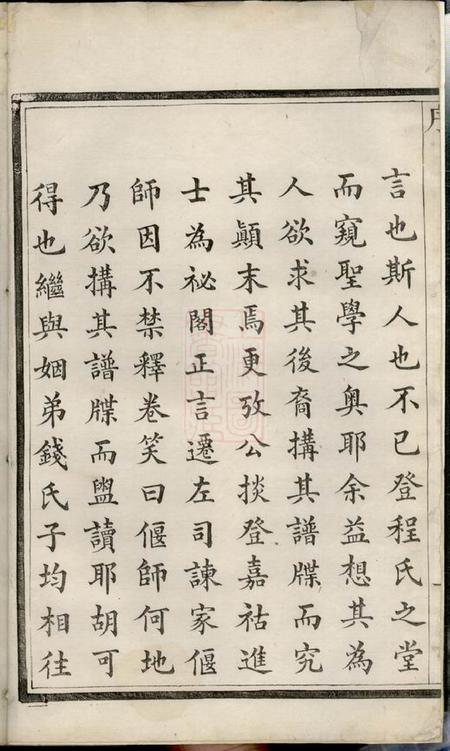 言也斯人也不已登程氏之堂
而窺聖學之奧耶余益想其為
人欲求其後裔搆其譜牒而究
其顛末焉更攷公掞登嘉祜進
士為祕閣正言遷左司諫家偃
師因不禁釋卷笑曰偃師何地
乃欲搆其譜牒而盥讀耶胡可
得也繼與姻弟錢氏子均相往